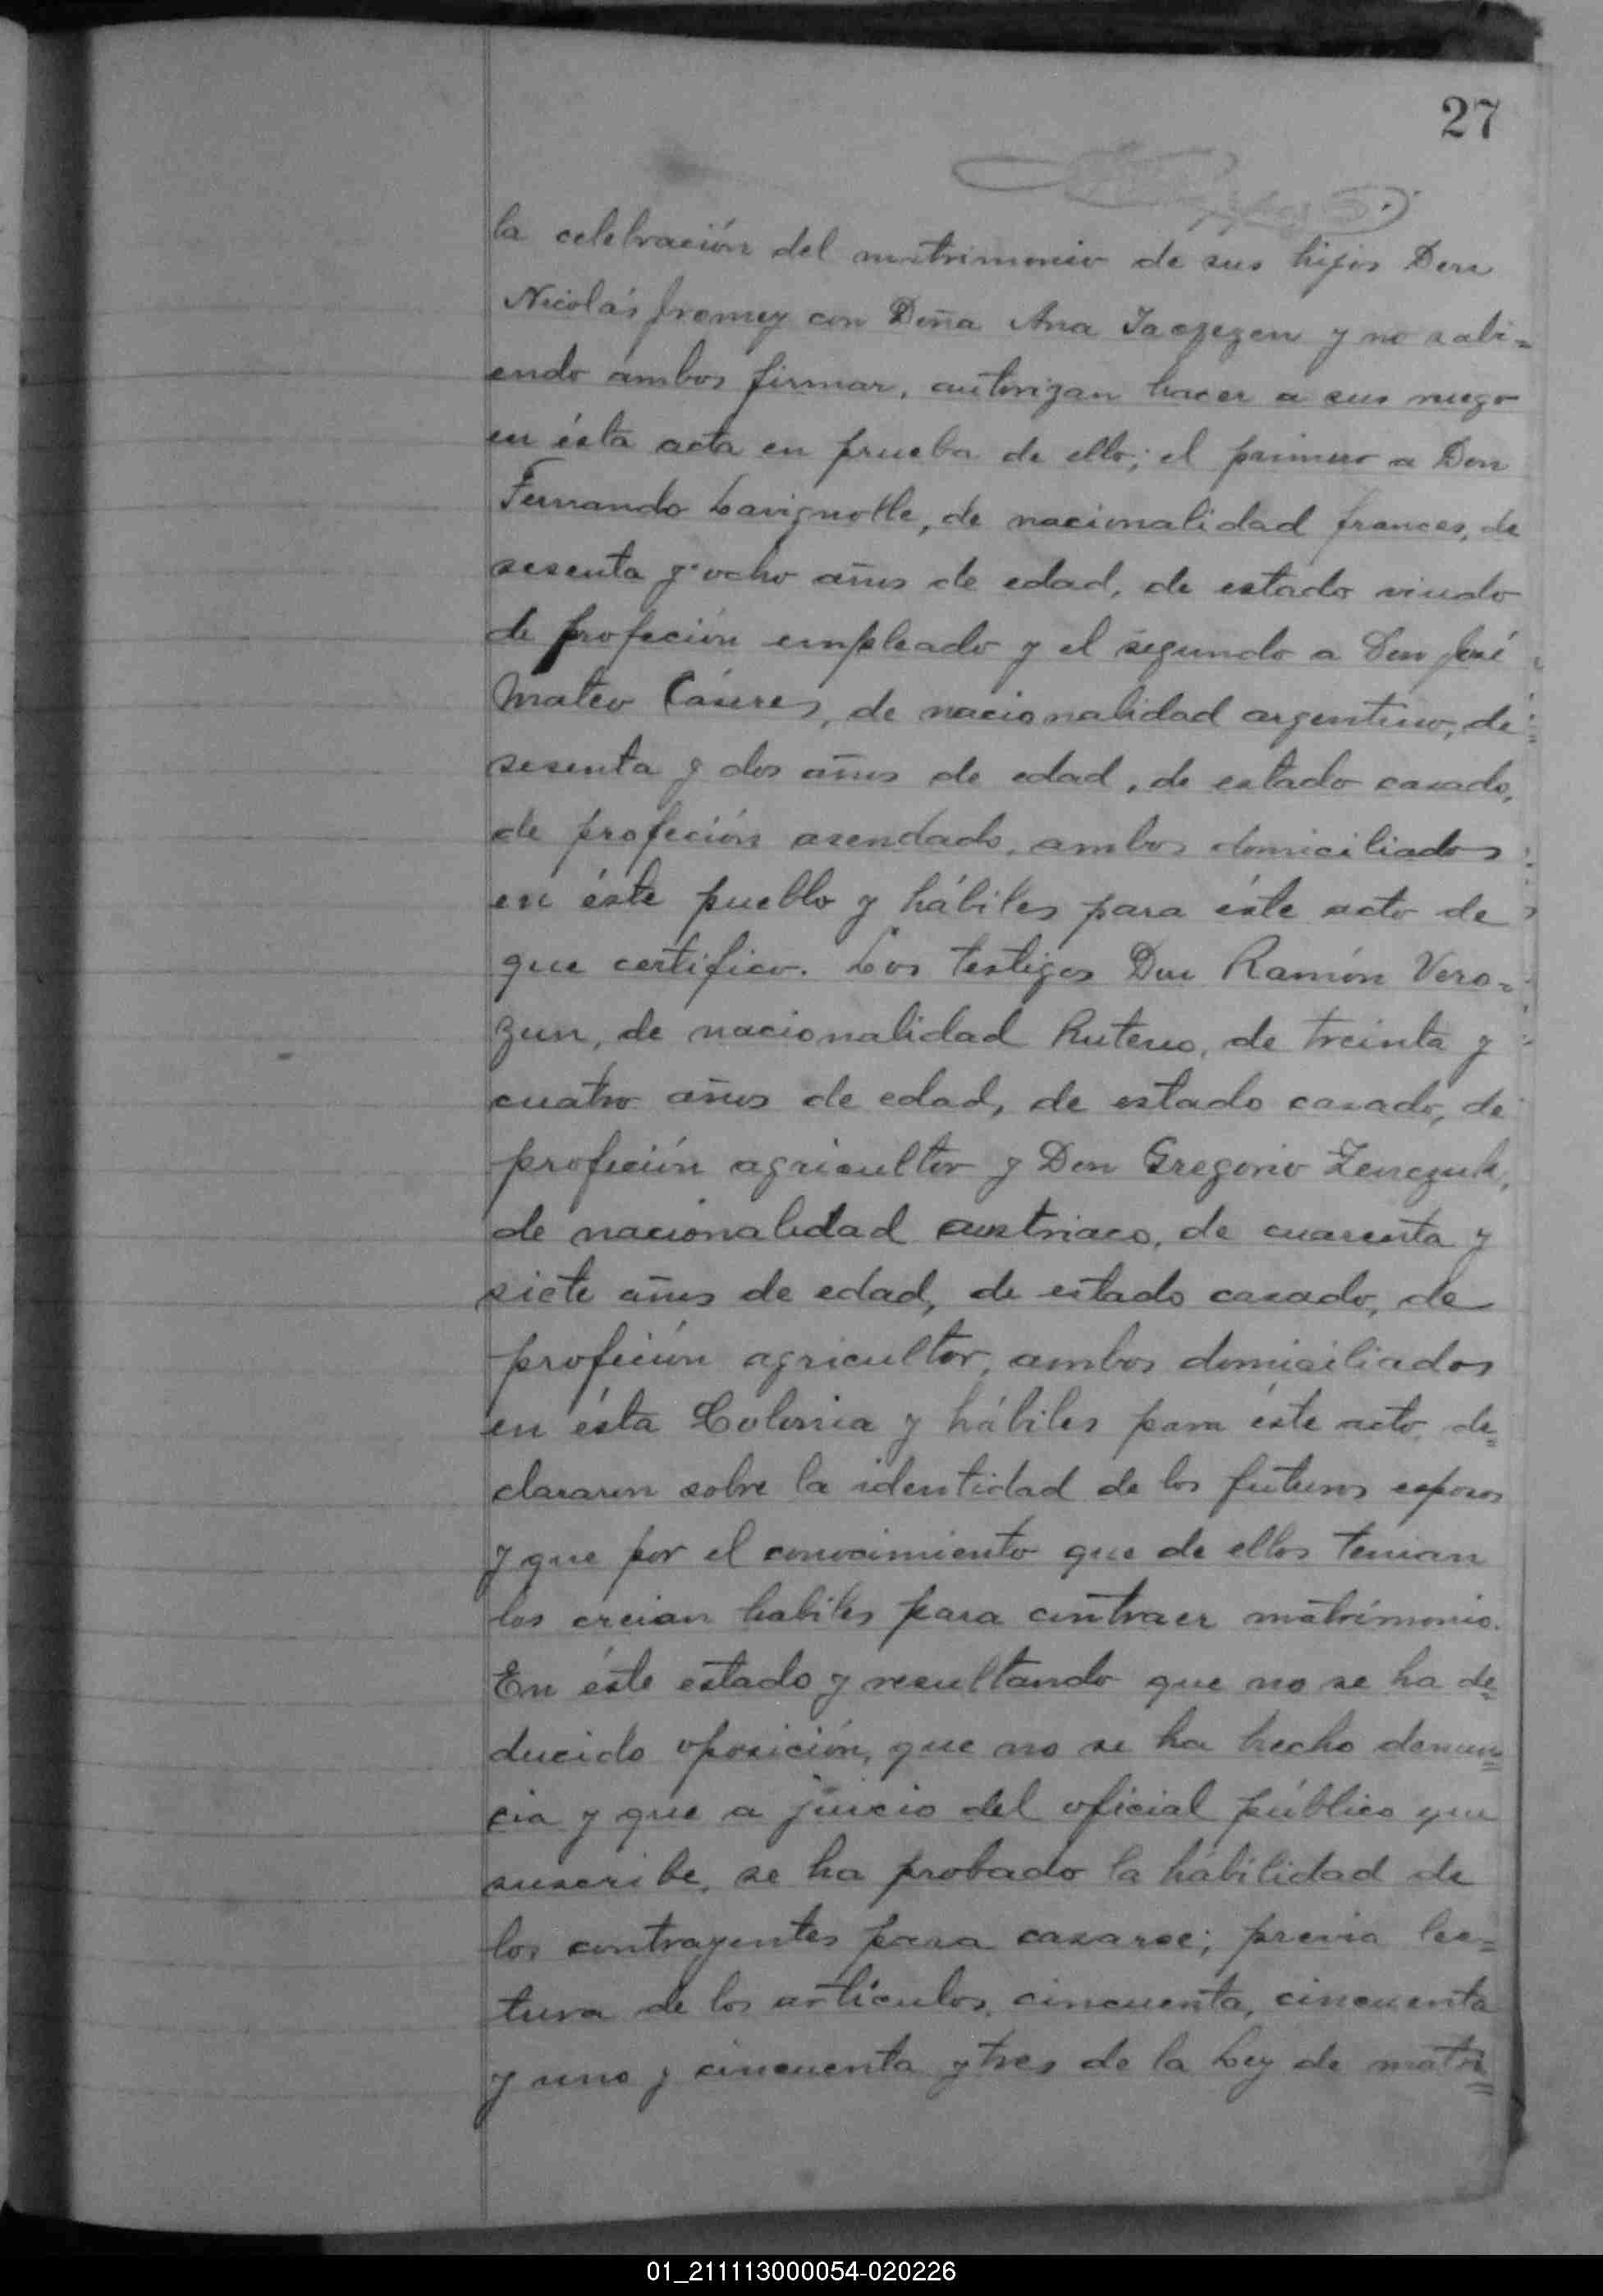 27
la celebración del matrimonio de sus hijos Don
Nicolás Jromey con Doña Ana y no sabi=
endo ambos firmar, autorizan hacer a sus ruego
en ésta acta en prueba de ello; el primero a Don
Fernando Lavignolle, de nacionalidad frances, de
sesenta y ocho años de edad, de estado viudo
de profeción empleado y el segundo a Don José
Mateo Cáseres, de nacionalidad argentino, de
sesenta y dos años de edad, de estado casado,
de profeción asendado, ambos domiciliados
en éste pueblo y hábiles para éste acto de
que certifico. Los testigos Don Ramón Vero=
zun, de nacionalidad Ruteno, de treinta y
cuatro años de edad, de estado casado, de
profición agricultor y Don Gregorio Zenczuk,
de nacionalidad austriaco, de cuarenta y
siete años de edad, de estado casado, de
profición agricultor, ambos domiciliados
en ésta Colonia y hábiles para éste acto, de=
clararon sobre la identidad de los futuros esposos
y que por el conocimiento que de ellos tenian
los creian habiles para contraer matrimonio.
En éste estado y resultando que no se ha de=
ducido oposición, que no se ha hecho denun=
cia y que a juicio del oficial público que
suscribe, se ha probado la habilidad de
los contrayentes para casarse; previa lec=
tura de los artículos, cincuenta, cincuenta
y uno y cincuenta y tres de la Ley de matri=
01_211113000054-020226